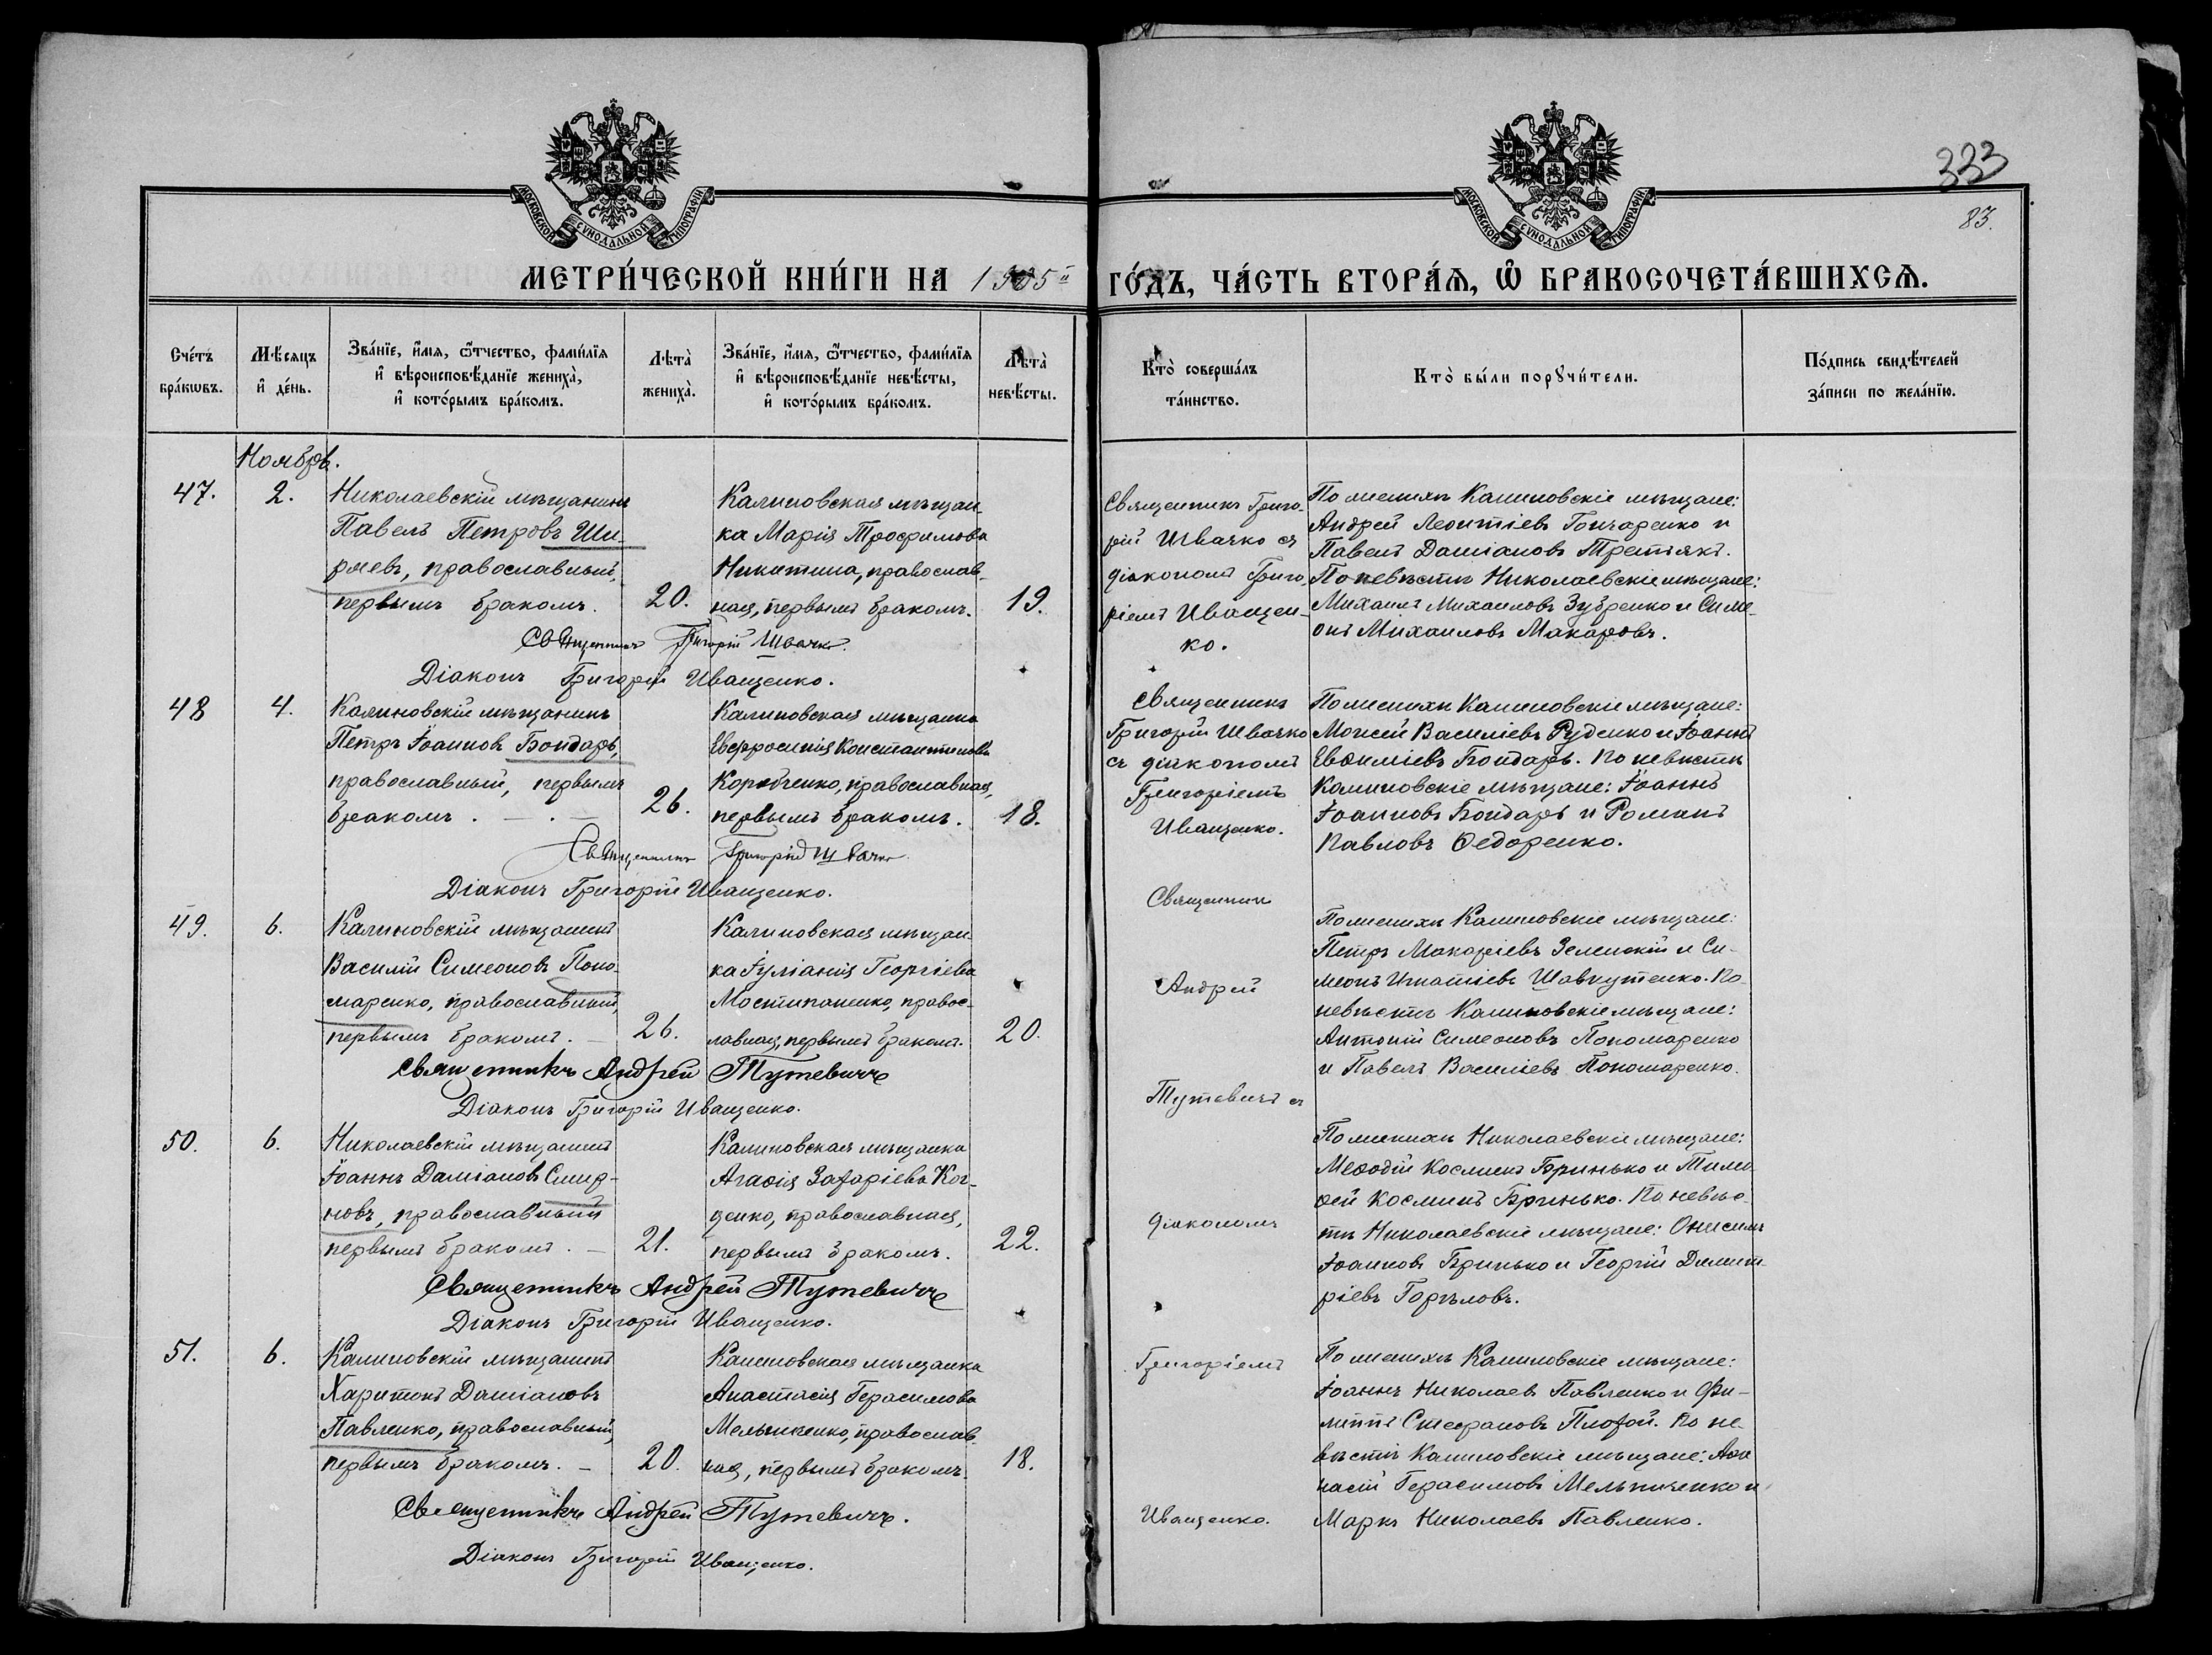 333
83.
МОСКОВСКОЙ СѴНОДАЛЬНОЙ ТИПОГРАФІИ
МОСКОВСКОЙ СѴНОДАЛЬНОЙ ТИПОГРАФІИ
МЕТРИ́ЧЕСКОЙ КНИ́ГИ НА 1905й ГО́ДЪ, ЧА́СТЬ ВТОРА́Я, Ѡ҆ БРАКОСОЧЕТА́ВШИХСѦ.
Сче́тъ бра́кѡвъ.
Мѣ́сяцъ и҆ де́нь.
Зва́нїе, и҆́мя, ѻ҆́тчество, фамѝлїя
и҆ вѣроисповѣ́данїе жениха̀,
и҆ кото́рымъ бра́комъ.
Лѣта̀ жениха̀.
Зва́нїе, и҆́мя, ѻ҆́тчество, фамѝлїя
и҆ вѣроисповѣ́данїе невѣ́сты,
и҆ кото́рымъ бра́комъ.
Лѣта̀ невѣ́сты.
Кто̀ соверша́лъ та́инство.
Кто̀ бы́ли порꙋчи́тели.
По́дпись свидѣ́телей за́писи по жела́нїю.
Ноябрь.
47.
2.
Николаевскій мѣщанинъ
Павелъ Петровъ Ши-
ряевъ, православный,
первымъ бракомъ.
20.
Калиновская мѣщан-
ка Марія Трофимова
Никитина, православ-
ная, первымъ бракомъ.
19.
Священникъ Григо-
рій Швачко съ
діакономъ Григо-
ріемъ Иващен-
ко.
По женихѣ Калиновскіе мѣщане:
Андрей Леонтіевъ Гончаренко и
Павелъ Даміановъ Третякъ.
По невѣстѣ Николаевскіе мѣщане:
Михаилъ Михаиловъ Зубренко и Симе-
онъ Михаиловъ Макаровъ.
Священникъ Григорій Швачко.
Діаконъ Григорій Иващенко.
48
4.
Калиновскій мѣщанинъ
Петръ Іоанновъ Бондарь,
православный, первымъ
бракомъ.
26.
Калиновская мѣщанка
Евфросинія Константинова
Коробченко, православная,
первымъ бракомъ.
18.
Священникъ
Григорій Швачко
съ діакономъ
Григоріемъ
Иващенко.
По женихѣ Калиновскіе мѣщане:
Моисей Василіевъ Руденко и Іоаннъ
Евѳиміевъ Бондарь. По невѣстѣ
Калиновскіе мѣщане: Іоаннъ
Іоанновъ Бондарь и Романъ
Павловъ Ѳедоренко.
Священникъ Григорій Швачко
Діаконъ Григорій Иващенко.
49.
6.
Калиновскій мѣщанинъ
Василій Симеоновъ Поно-
маренко, православный,
первымъ бракомъ.
26.
Калиновская мѣщан-
ка Іуліанія Георгіева
Мостипаненко, правос-
лавная, первымъ бракомъ.
20.
Священникъ
Андрей
Тутевичъ съ
діакономъ
Григоріемъ
Иващенко.
По женихѣ Калиновскіе мѣщане:
Петръ Макаріевъ Зеленскій и Си-
меонъ Игнатіевъ Шавкутенко. По
невѣстѣ Калиновскіе мѣщане:
Антоній Симеоновъ Пономаренко
и Павелъ Василіевъ Пономаренко.
Священникъ Андрей Тутевичъ
Діаконъ Григорій Иващенко.
50.
6.
Николаевскій мѣщанинъ
Іоаннъ Даміановъ Смир-
новъ, православный
первымъ бракомъ.
21.
Калиновская мѣщанка
Агаѳія Захаріева Ког-
денко, православная,
первымъ бракомъ.
22.
По женихѣ Николаевскіе мѣщане:
Меѳодій Косминъ Бринько и Тимо-
ѳей Косминъ Бринько. По невѣс-
тѣ Николаевскіе мѣщане: Онисимъ
Іоанновъ Бринько и Георгій Димит-
ріевъ Горѣловъ.
Священникъ Андрей Тутевичъ
Діаконъ Григорій Иващенко.
51.
6.
Калиновскій мѣщанинъ
Харитонъ Даміановъ
Павленко, православный,
первымъ бракомъ.
20.
Калиновская мѣщанка
Анастасія Герасимова
Мельниченко, православ-
ная, первымъ бракомъ.
18.
По женихѣ Калиновскіе мѣщане:
Іоаннъ Николаевъ Павленко и Фи-
липпъ Стефановъ Плохой. По не-
вѣстѣ Калиновскіе мѣщане: Аѳа-
насій Герасимовъ Мельниченко и
Маркъ Николаевъ Павленко.
Священникъ Андрей Тутевичъ.
Діаконъ Григорій Иващенко.